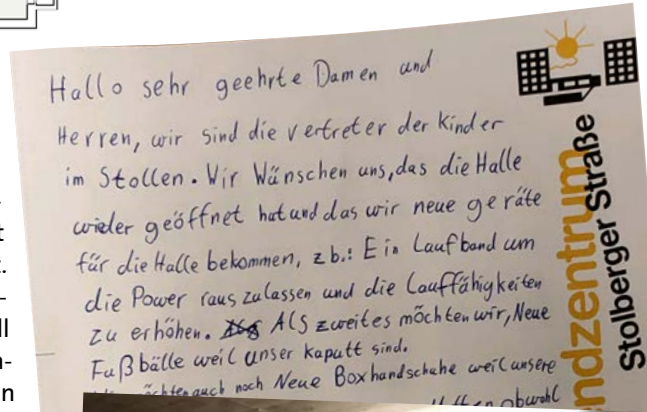 Hallo sehr geehrte Damen und
Herren, wir sind die vertreter der kinder
im Stollen. Wir Wünschen uns, das die Halle
wieder geöffnet hat und das wir neue geräte
für die Halle bekommen, zb.: Ein Laufband um
die Power raus zulassen und die Lauffähigkeiten
zu erhöhen. Als zweites möchten wir, Neue
Fußbälle weil unser kaputt sind.
möchten auch noch Neue Boxhandschuhe weil unsere
obwohl
ndzentrum
Stolberger Straße
t
t.
-
ll
n-
n